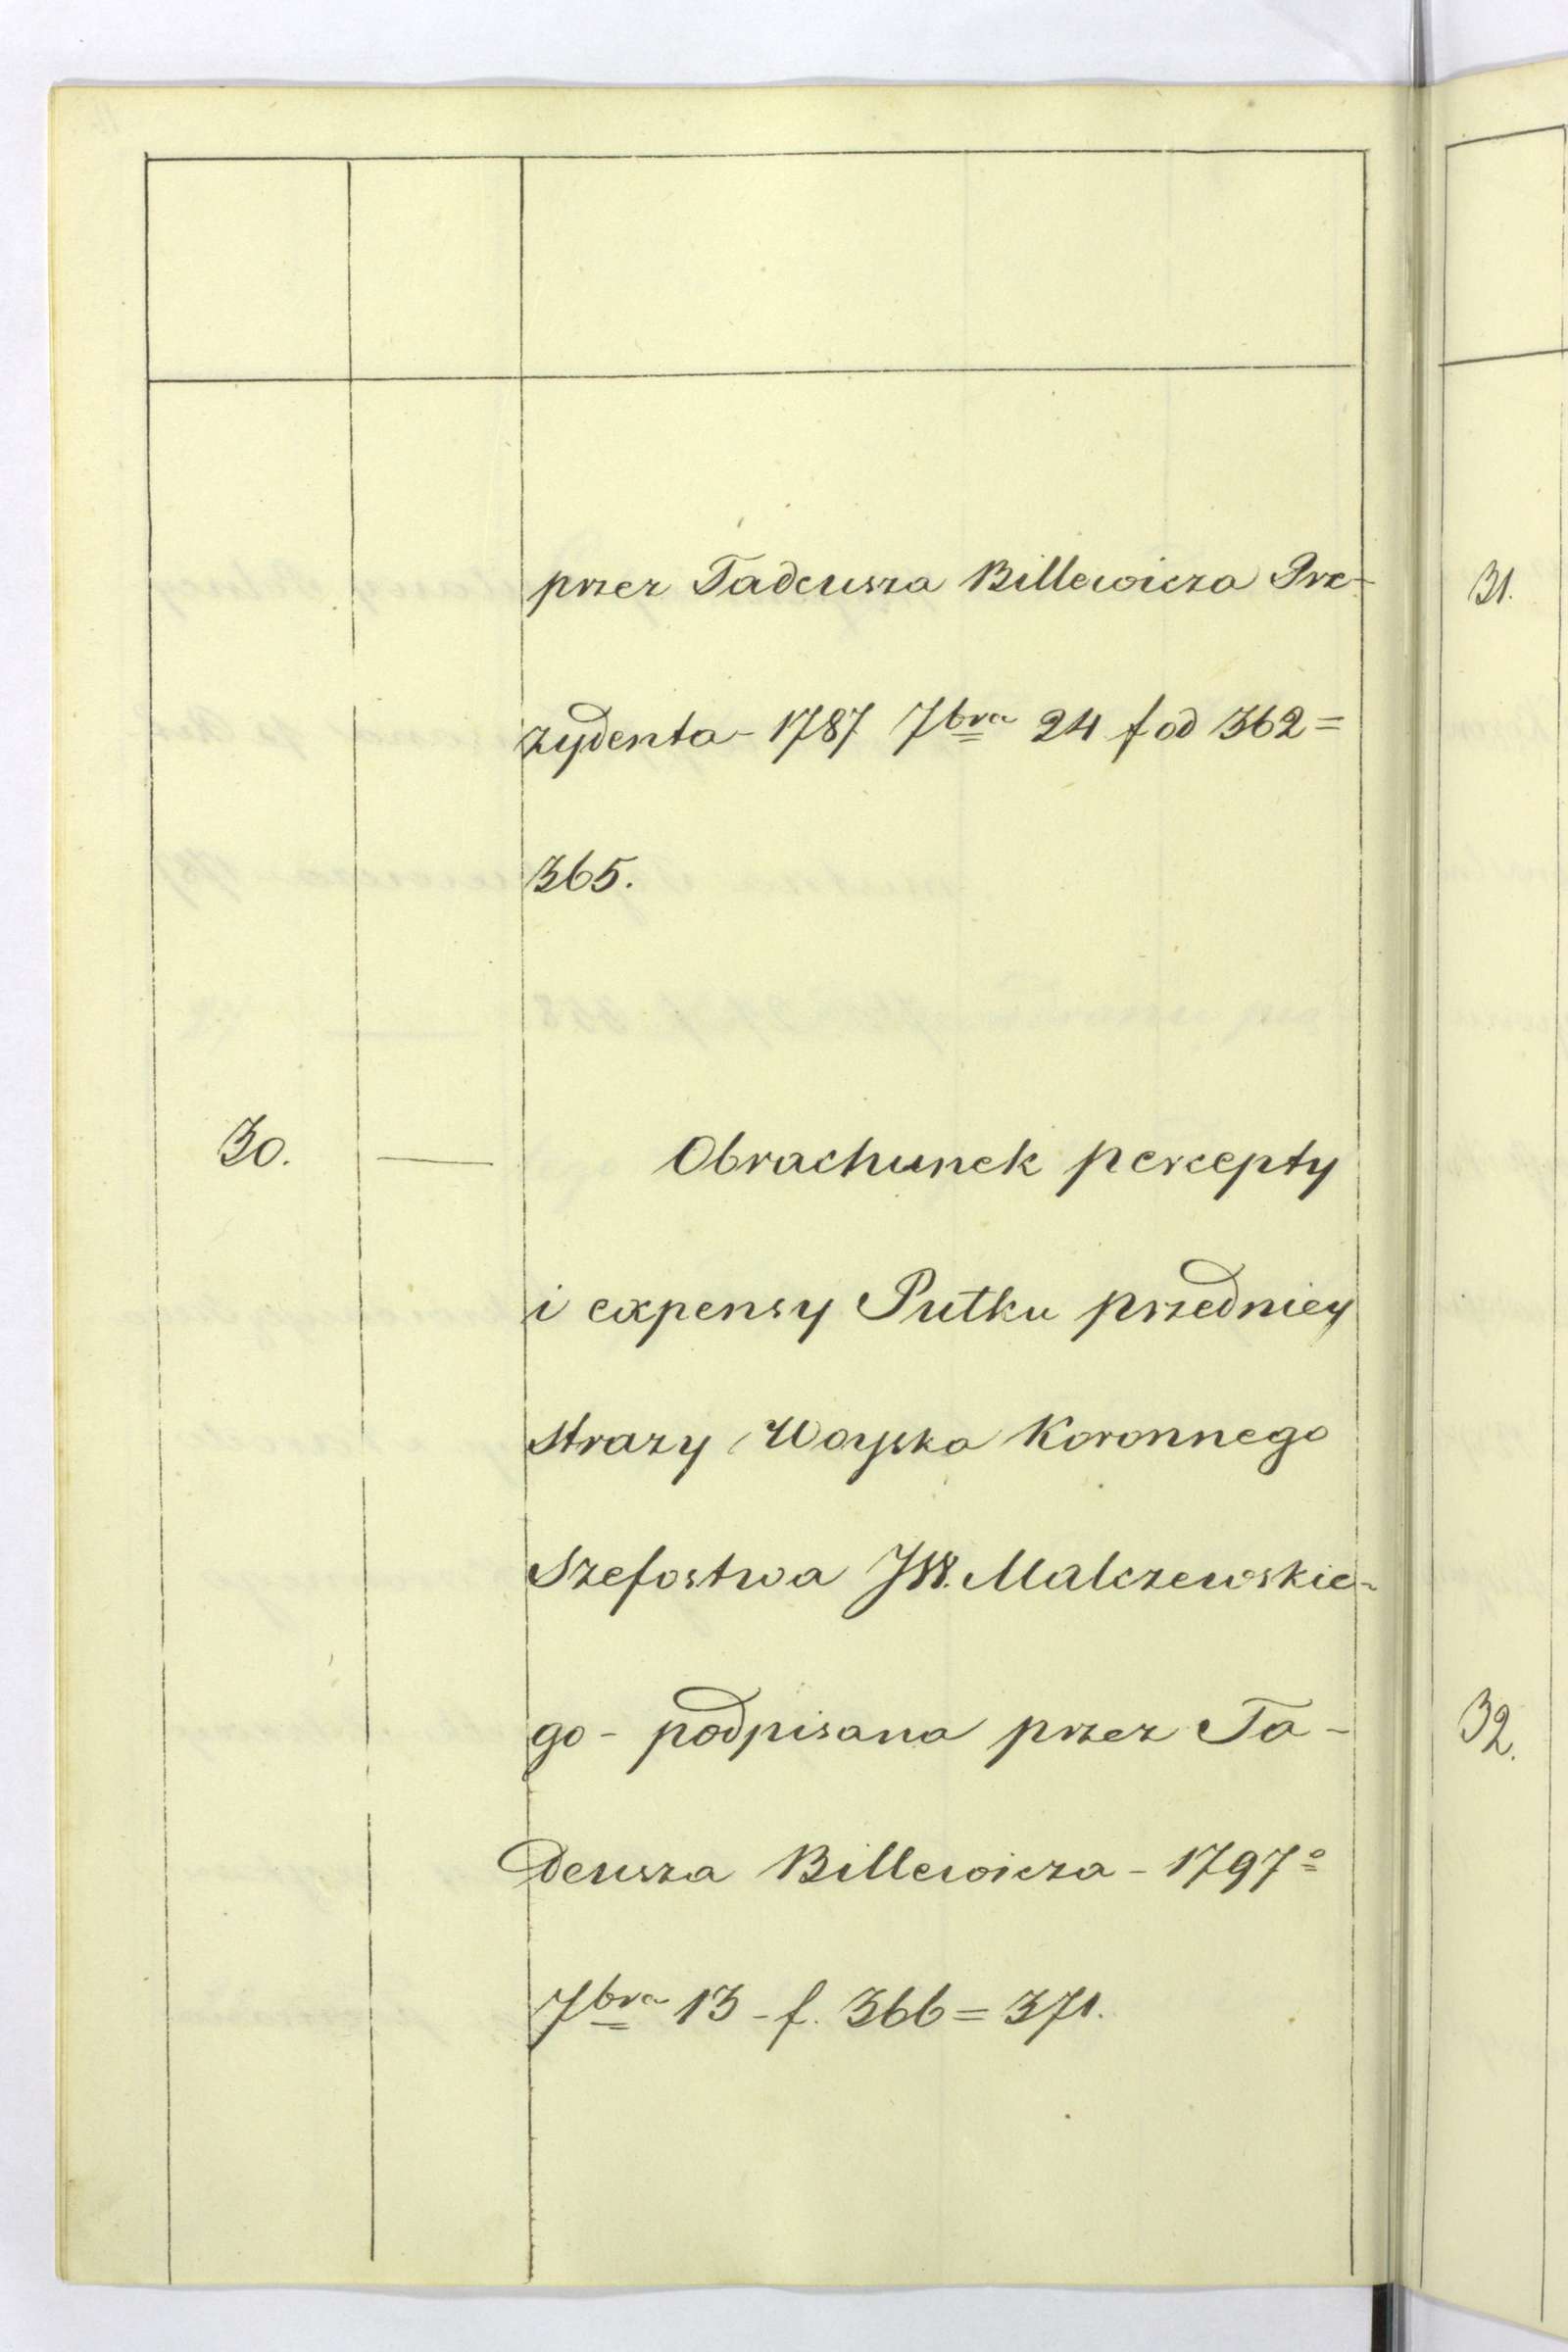 przez Tadeusza Billewicza Pre-
zydenta - 1787 7bra 24 f od 362=
365.
30. — Obrachunek percepty
i expensy Pułku przedniey
strazy Woyska Koronnego
Szefostwa JW. Malczewskie-
go - podpisana przez Ta-
deusza Billewicza - 1797º
7bra 13 - f. 366=371.
31.
32.